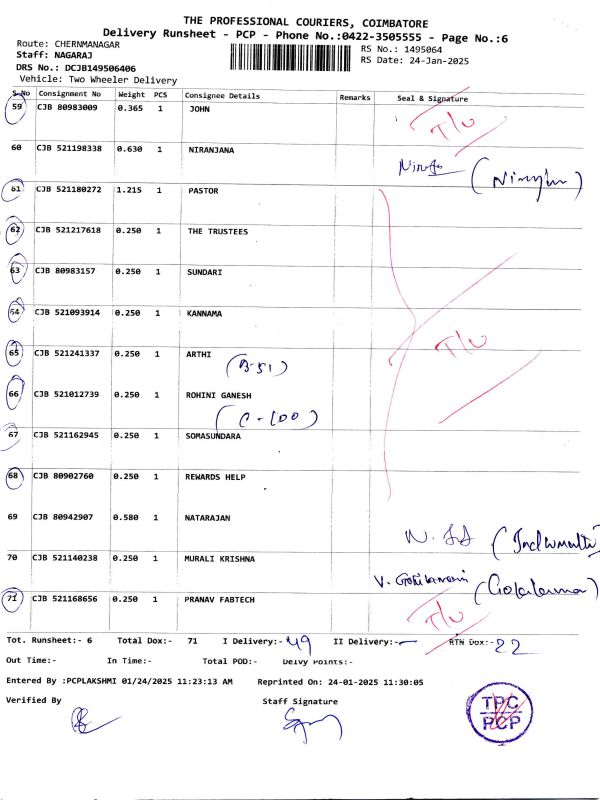 THE PROFESSIONAL COURIERS, COIMBATORE
Delivery Runsheet - PCP - Phone No.:0422-3505555 - Page No.:6
Route: CHERNMANAGAR
RS No.: 1495064
Staff: NAGARAJ
RS Date: 24-Jan-2025
DRS No.: DCJB149506406
Vehicle: Two Wheeler Delivery
S.No Consignment No Weight PCS Consignee Details Remarks Seal & Signature
59 CJB 80983009 0.365 1 JOHN T/U
60 CJB 521198338 0.630 1 NIRANJANA
61 CJB 521180272 1.215 1 PASTOR
62 CJB 521217618 0.250 1 THE TRUSTEES
63 CJB 80983157 0.250 1 SUNDARI
64 CJB 521093914 0.250 1 KANNAMA
65 CJB 521241337 0.250 1 ARTHI T/U
(B-51)
66 CJB 521012739 0.250 1 ROHINI GANESH
(C-100)
67 CJB 521162945 0.250 1 SOMASUNDARA
68 CJB 80902760 0.250 1 REWARDS HELP
69 CJB 80942907 0.580 1 NATARAJAN
70 CJB 521140238 0.250 1 MURALI KRISHNA
71 CJB 521168656 0.250 1 PRANAV FABTECH T/U
Tot. Runsheet:- 6 Total Dox:- 71 I Delivery:- 49 II Delivery:- RTN Dox:- 22
Out Time:- In Time:- Total POD:- Delvy Points:-
Entered By :PCPLAKSHMI 01/24/2025 11:23:13 AM Reprinted On: 24-01-2025 11:30:05
Verified By Staff Signature
TPC
PCP